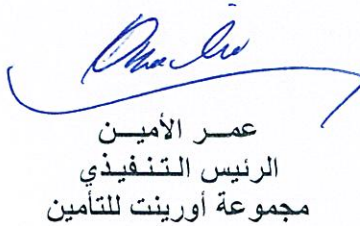 عمر الأمين
الرئيس التنفيذي
مجموعة أورينت للتأمين